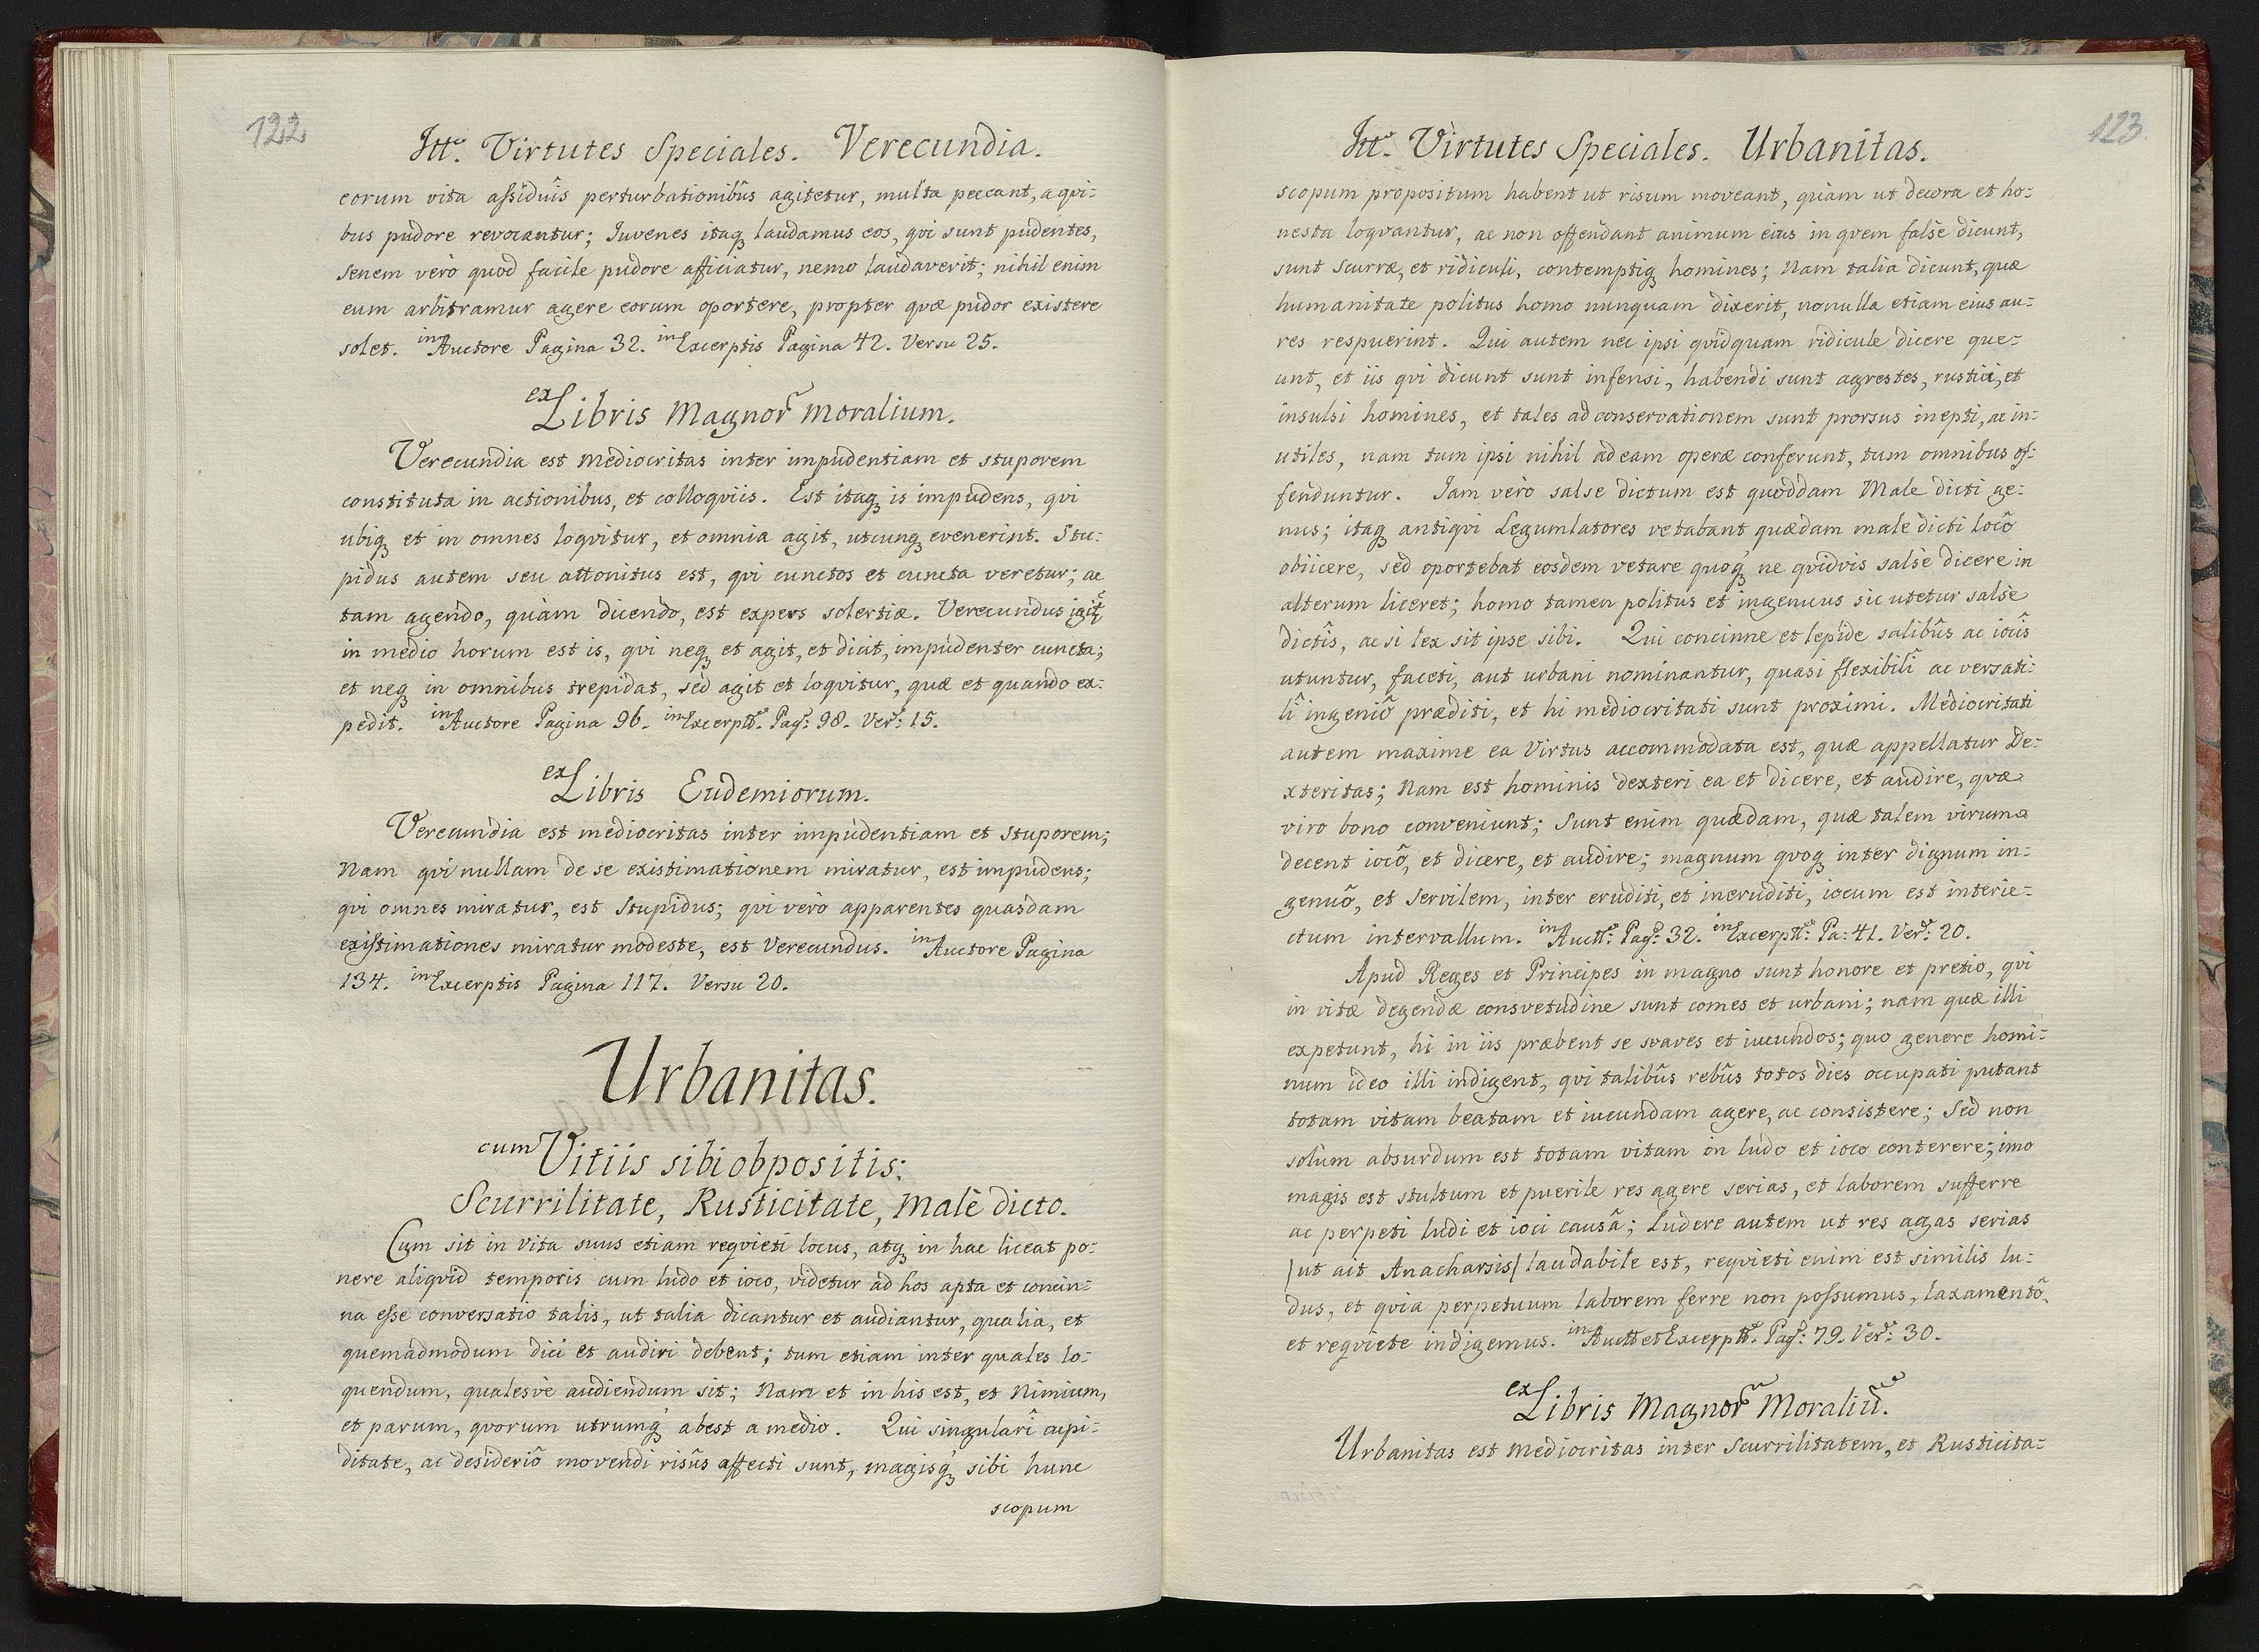 122
Itt͠e. Virtutes Speciales. Verecundia.
eorum vita assiduîs perturbationibûs agitetur, multa peccant, a qvi=
bus pudore revocantur; Iuvenes itaq₃ laudamus eos, qvi sunt pudentes,
senem verò quod facile pudore afficiatur, nemo laudaverit; nihil enim
eum arbitramur agere eorum oportere, propter quæ pudor existere
solet. in Auctore Pagina 32. in Excerptis Pagina 42. Versu 25.
ex Libris Magnor͠ Moralium.
Verecundia est Mediocritas inter impudentiam et stuporem
constituta in actionibus, et colloqviis. Est itaq₃ is impudens, qvi
ubiq₃ et in omnes loqvitur, et omnia agit, utcunq₃ evenerint. Stu=
pidus autem seu attonitus est, qvi cunctos et cuncta veretur; ac
tam agendo, quàm dicendo, est expers solertiæ. Verecundus igit͠
in medio horum est is, qvi neq₃ et agit, et dicit, impudenter cuncta;
et neq₃ in omnibus trepidat, sed agit et loqvitur, quæ et quando ex=
pedit. in Auctore Pagina 96. in Excerptt͠. Pag͠: 98. Ver͠: 15.
ex Libris Eudemiorum.
Verecundia est mediocritas inter impudentiam et stuporem;
Nam qvi nullam de se existimationem miratur, est impudens;
qvi omnes miratur, est Stupidus; qvi verò apparentes quasdam
existimationes miratur modeste, est Verecundus. in Auctore Pagina
134. in Excerptis Pagina 117. Versu 20.
Urbanitas.
cum Vitiis sibi obpositis:
Scurrilitate, Rusticitate, Malè dicto.
Cum sit in Vita suus etiam reqvieti locus, atq₃ in hac liceat po=
nere aliqvid temporis cum ludo et ioco, videtur ad hos apta et concin=
na esse conversatio talis, ut talia dicantur et audiantur, qualia, et
quemadmodum dici et audiri debent; tum etiam inter quales lo=
quendum, qualesvè audiendum sit; Nam et in his est, et Nimium,
et parum, qvorum utrumq₃ abest a medio. Qui singulari cupi=
ditate, ac desideriô movendi risûs affecti sunt, magisq₃ sibi hunc
scopum
123.
Itt͠e. Virtutes Speciales. Urbanitas.
scopum propositum habent ut risum moveant, quàm ut decora et ho=
nesta loqvantur, ac non offendant animum eius in qvem falsè dicunt,
sunt scurræ, et ridiculi, contemptiq₃ homines; Nam talia dicunt, quæ
humanitate politus homo nunquam dixerit, nonulla etiam eius au=
res respuerint. Qui autem nec ipsi qvidquam ridicule dicere que=
unt, et iis qvi dicunt sunt infensi, habendi sunt agrestes, rustici, et
insulsi homines, et tales ad conservationem sunt prorsus inepti, ac in=
utiles, nam tum ipsi nihil ad eam operæ conferunt, tum omnibus of=
fenduntur. Iam verò salse dictum est quoddam Male dicti ge=
nus; itaq₃ antiqvi Legumlatores vetabant quædam male dicti locô
obiicere, sed oportebat eosdem vetare quoq₃ ne qvidvis salsè dicere in
alterum liceret; homo tamen politus et ingenuus sic utetur salsè
dictîs, ac si lex sit ipse sibi. Qui concinne et lepide salibûs ac iocîs
utuntur, faceti, aut urbani nominantur, quasi flexibilî ac versati=
lî ingeniô præditi, et hi mediocritati sunt proximi. Mediocritati
autem maxime ea Virtus accommodata est, quæ appellatur De=
xteritas; Nam est hominis dexteri ea et dicere, et audire, qvæ
viro bono conveniunt; Sunt enim quædam, quæ talem virum
decent iocô, et dicere, et audire; magnum qvoq₃ inter dignum in=
genuô, et servilem, inter eruditi, et ineruditi, iocum est interie=
ctum intervallum. in Auctt͠: Pag͠: 32. in Excerptt͠: Pa: 41. Ver͠: 20.
Apud Reges et Principes in magno sunt honore et pretio, qvi
in vitæ degendæ consvetudine sunt comes et urbani; nam quæ illi
expetunt, hi in iis præbent se svaves et iucundos; quo genere homi=
num ideo illi indigent, qvi talibûs rebûs totos dies occupati putant
totam vitam beatam et iucundam agere, ac consistere; Sed non
solùm absurdum est totam vitam in ludo et ioco conterere; imo
magis est stultum et puerile res agere serias, et laborem sufferre
ac perpeti ludi et ioci causâ; Ludere autem ut res agas serias
/ut ait Anacharsis/ laudabile est, reqvieti enim est similis lu=
dus, et qvia perpetuum laborem ferre non possumus, laxamentô,
et reqviete indigemus. in Auctt et Excerptt͠. Pag͠: 79. Ver͠: 30.
ex Libris Magnor͠ Moraliu͠.
Urbanitas est Mediocritas inter Scurrilitatem, et Rusticita=